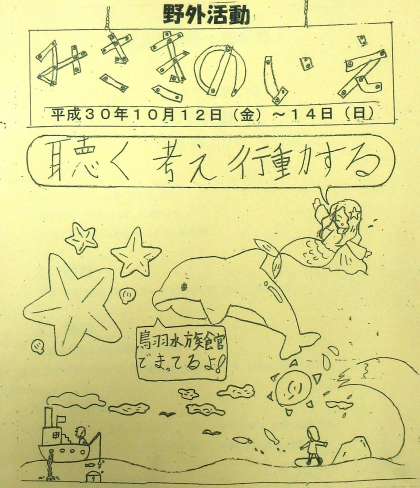 野外活動
みさきのいえ
平成30年10月12日（金）～14日（日）
聴く 考え 行動する
鳥羽水族館
でまってるよ!